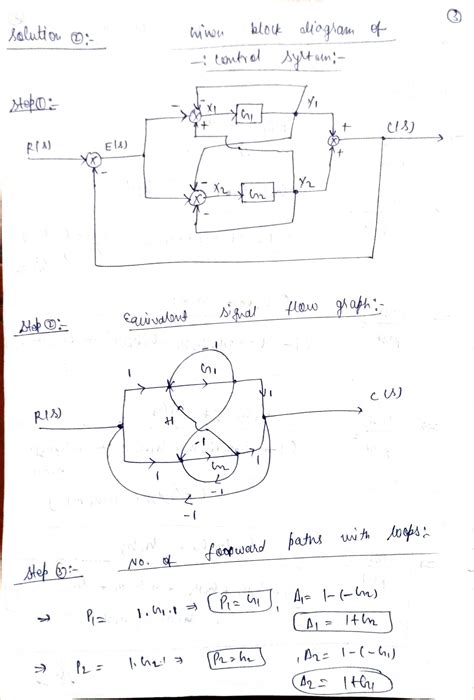 3
Solution ②:-
Given block diagram of
-: control system:-
Step①:-
R(s)
E(s)
-
-
-
+
X1
G1
Y1
+
+
C(s)
-
-
X2
G2
Y2
-
Step②:-
Equivalent signal flow graph:-
-1
1
G1
1
R(s)
C(s)
-1
1
G2
1
-1
-1
Step ③:-
No. of forward paths with loops:-
⇒ P1 = 1.G1.1 ⇒ P1 = G1 , Δ1 = 1-(-G2)
Δ1 = 1+G2
⇒ P2 = 1.G2.1 ⇒ P2 = G2 , Δ2 = 1-(-G1)
Δ2 = 1+G1